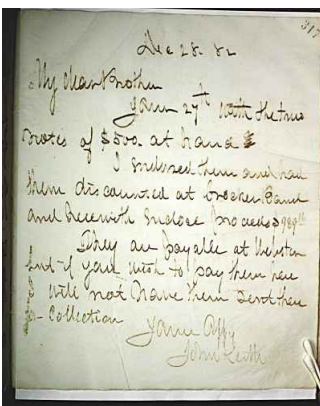 317
Dec 28. 82
My Dear Brother
Yours 27th with the two
notes of $500 at hand
I endorsed them and had
them discounted at Crocker Bank
and herewith enclose proceeds
They are payable at Webster
but if you wish to pay them here
I will not have them sent there
for Collection
Yours Affy
John Keith